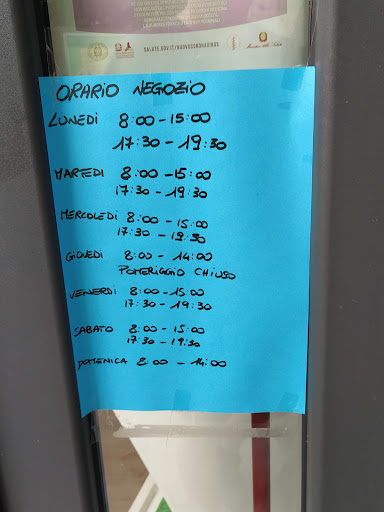 SALUTE.GOV.IT/NUOVOCORONAVIRUS
ORARIO NEGOZIO
LUNEDI 8:00-15:00
17:30-19:30
MARTEDI 8:00-15:00
17:30-19:30
MERCOLEDI 8:00-15:00
17:30-19:30
GIOVEDI 8:00-14:00
POMERIGGIO CHIUSO
VENERDI 8:00-15:00
17:30-19:30
SABATO 8:00-15:00
17:30-19:30
DOMENICA 8:00-14:00